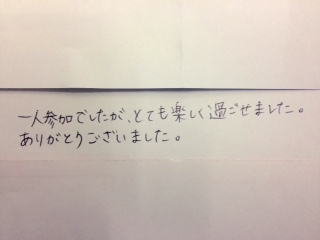 一人参加でしたが、とても楽しく過ごせました。
ありがとうございました。